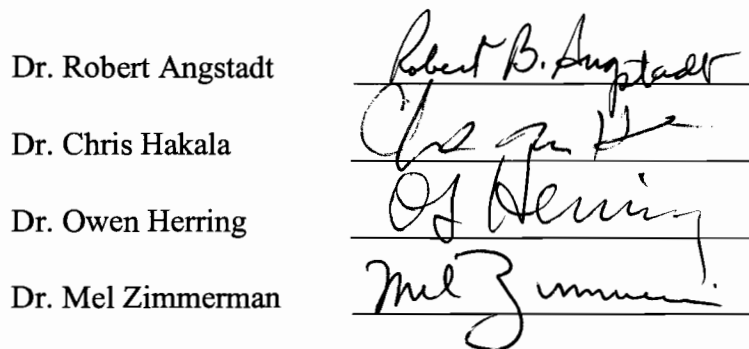 Dr. Robert Angstadt Robert B. Angstadt
Dr. Chris Hakala
Dr. Owen Herring OJ Herring
Dr. Mel Zimmerman Mel Zimmerman